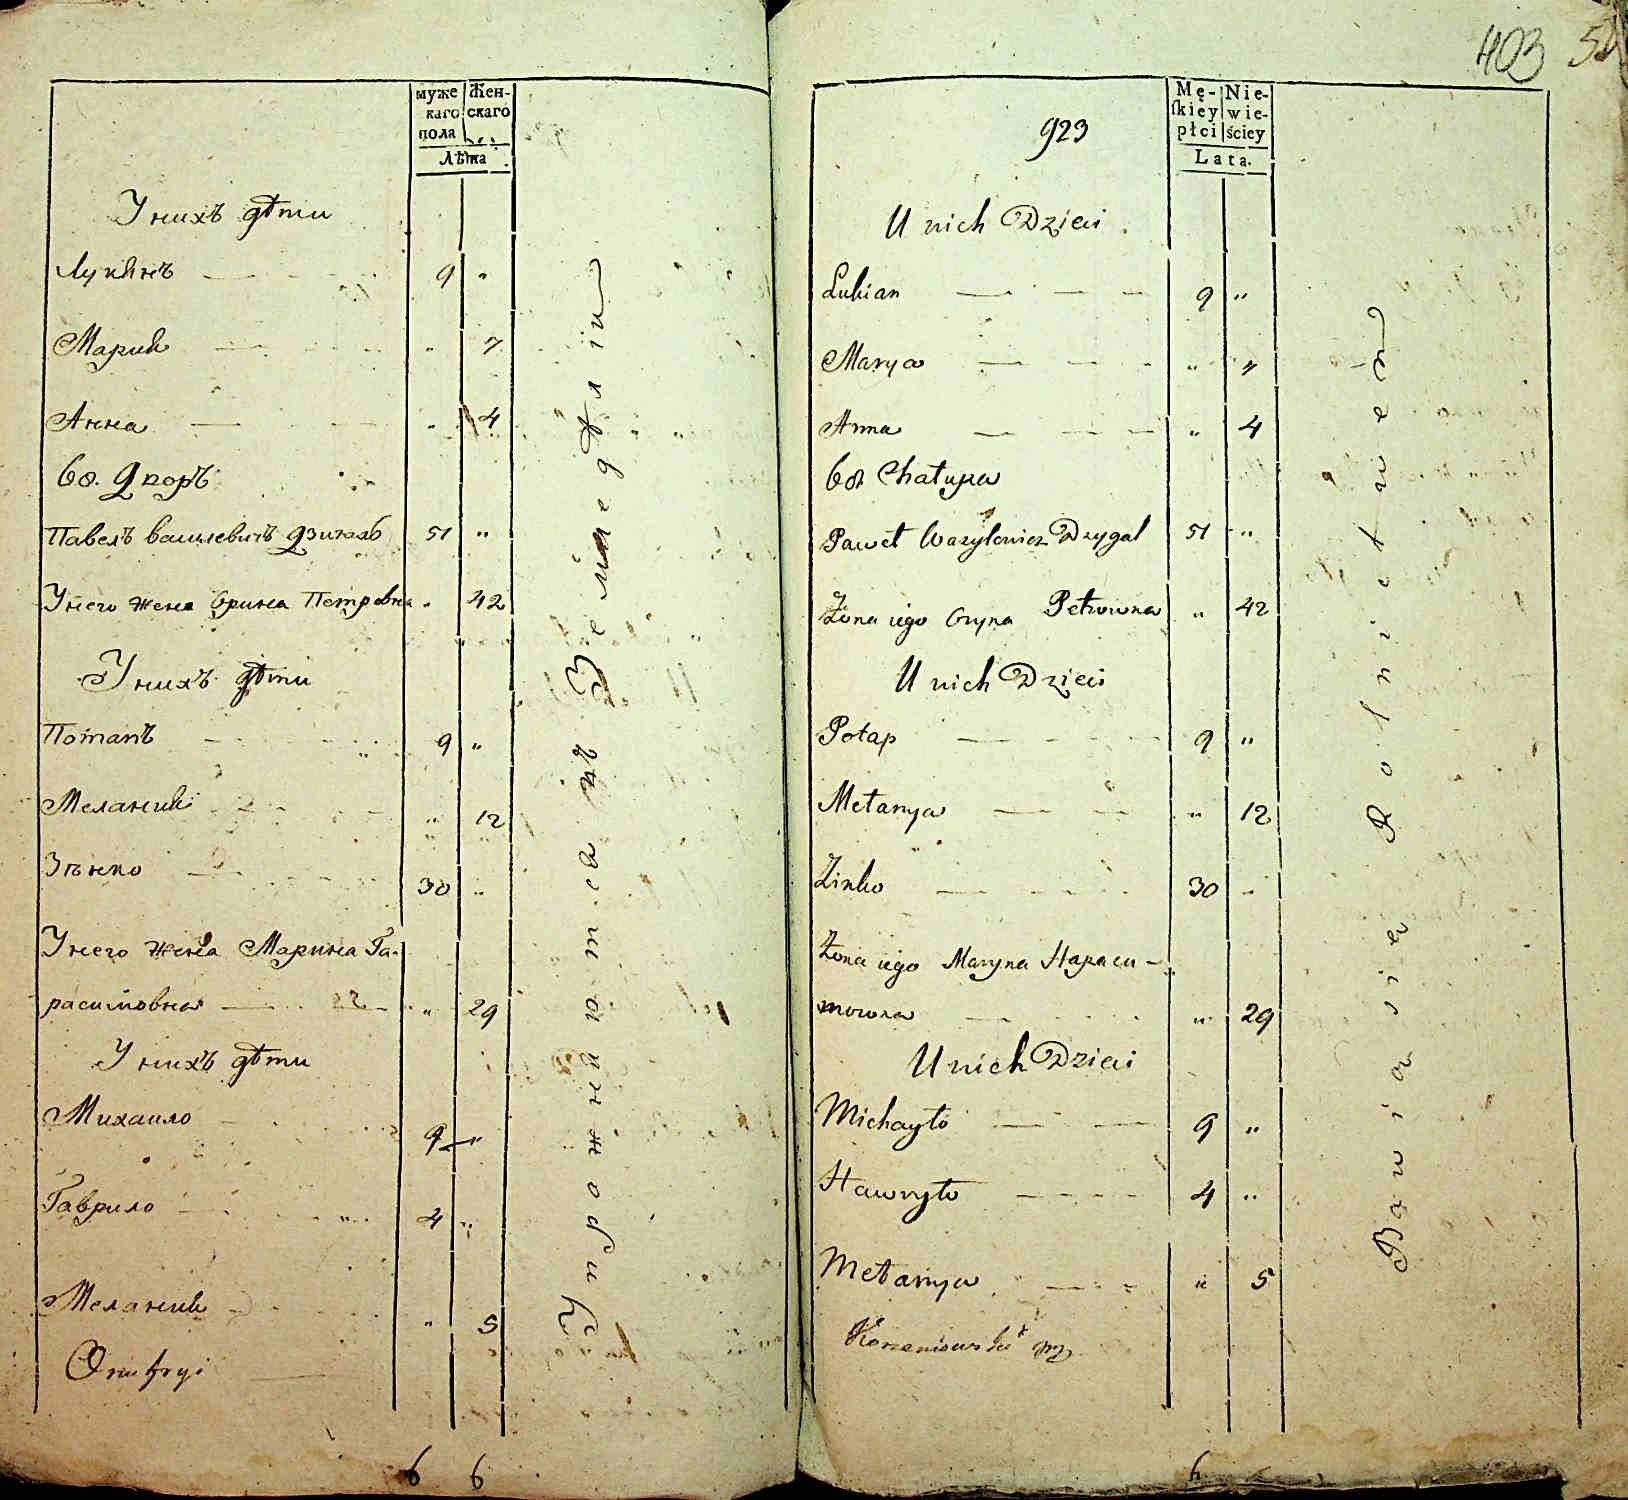 муже Жен-
каго скаго
пола
Лѣта
У нихъ дѣти
Лукянъ 9 "
Мария " 7
Анна " 4
68. Дворъ
Павелъ василевичъ Дзигалъ 51 "
У него жена Орина Петровна " 42
У нихъ дѣти
Потапъ 9 "
Мелания " 12
Зѣнко 30 "
У него жена Марина Га-
расимовна " 29
У нихъ дѣти
Михаило 9 "
Гаврило 4 "
Мелания " 5
Onufryi
6 6
Упрожняются въ Земледѣліи
403
923
Mę- Nie-
skiey wie-
płci ściey
Lata.
U nich Dzieci
Łukian 9 "
Marya " 7
Anna " 4
68 Chałupa
Paweł Wazylewicz Dzygal 51 "
Żona iego Oryna Petrowna " 42
U nich Dzieci
Potap 9 "
Mełanya " 12
Zinko 30 "
Żona iego Maryna Harasi-
mowna " 29
U nich Dzieci
Michayło 9 "
Hawryło 4 "
Mełanya " 5
Korzeniowski
6
Bawią się Rolnictwem